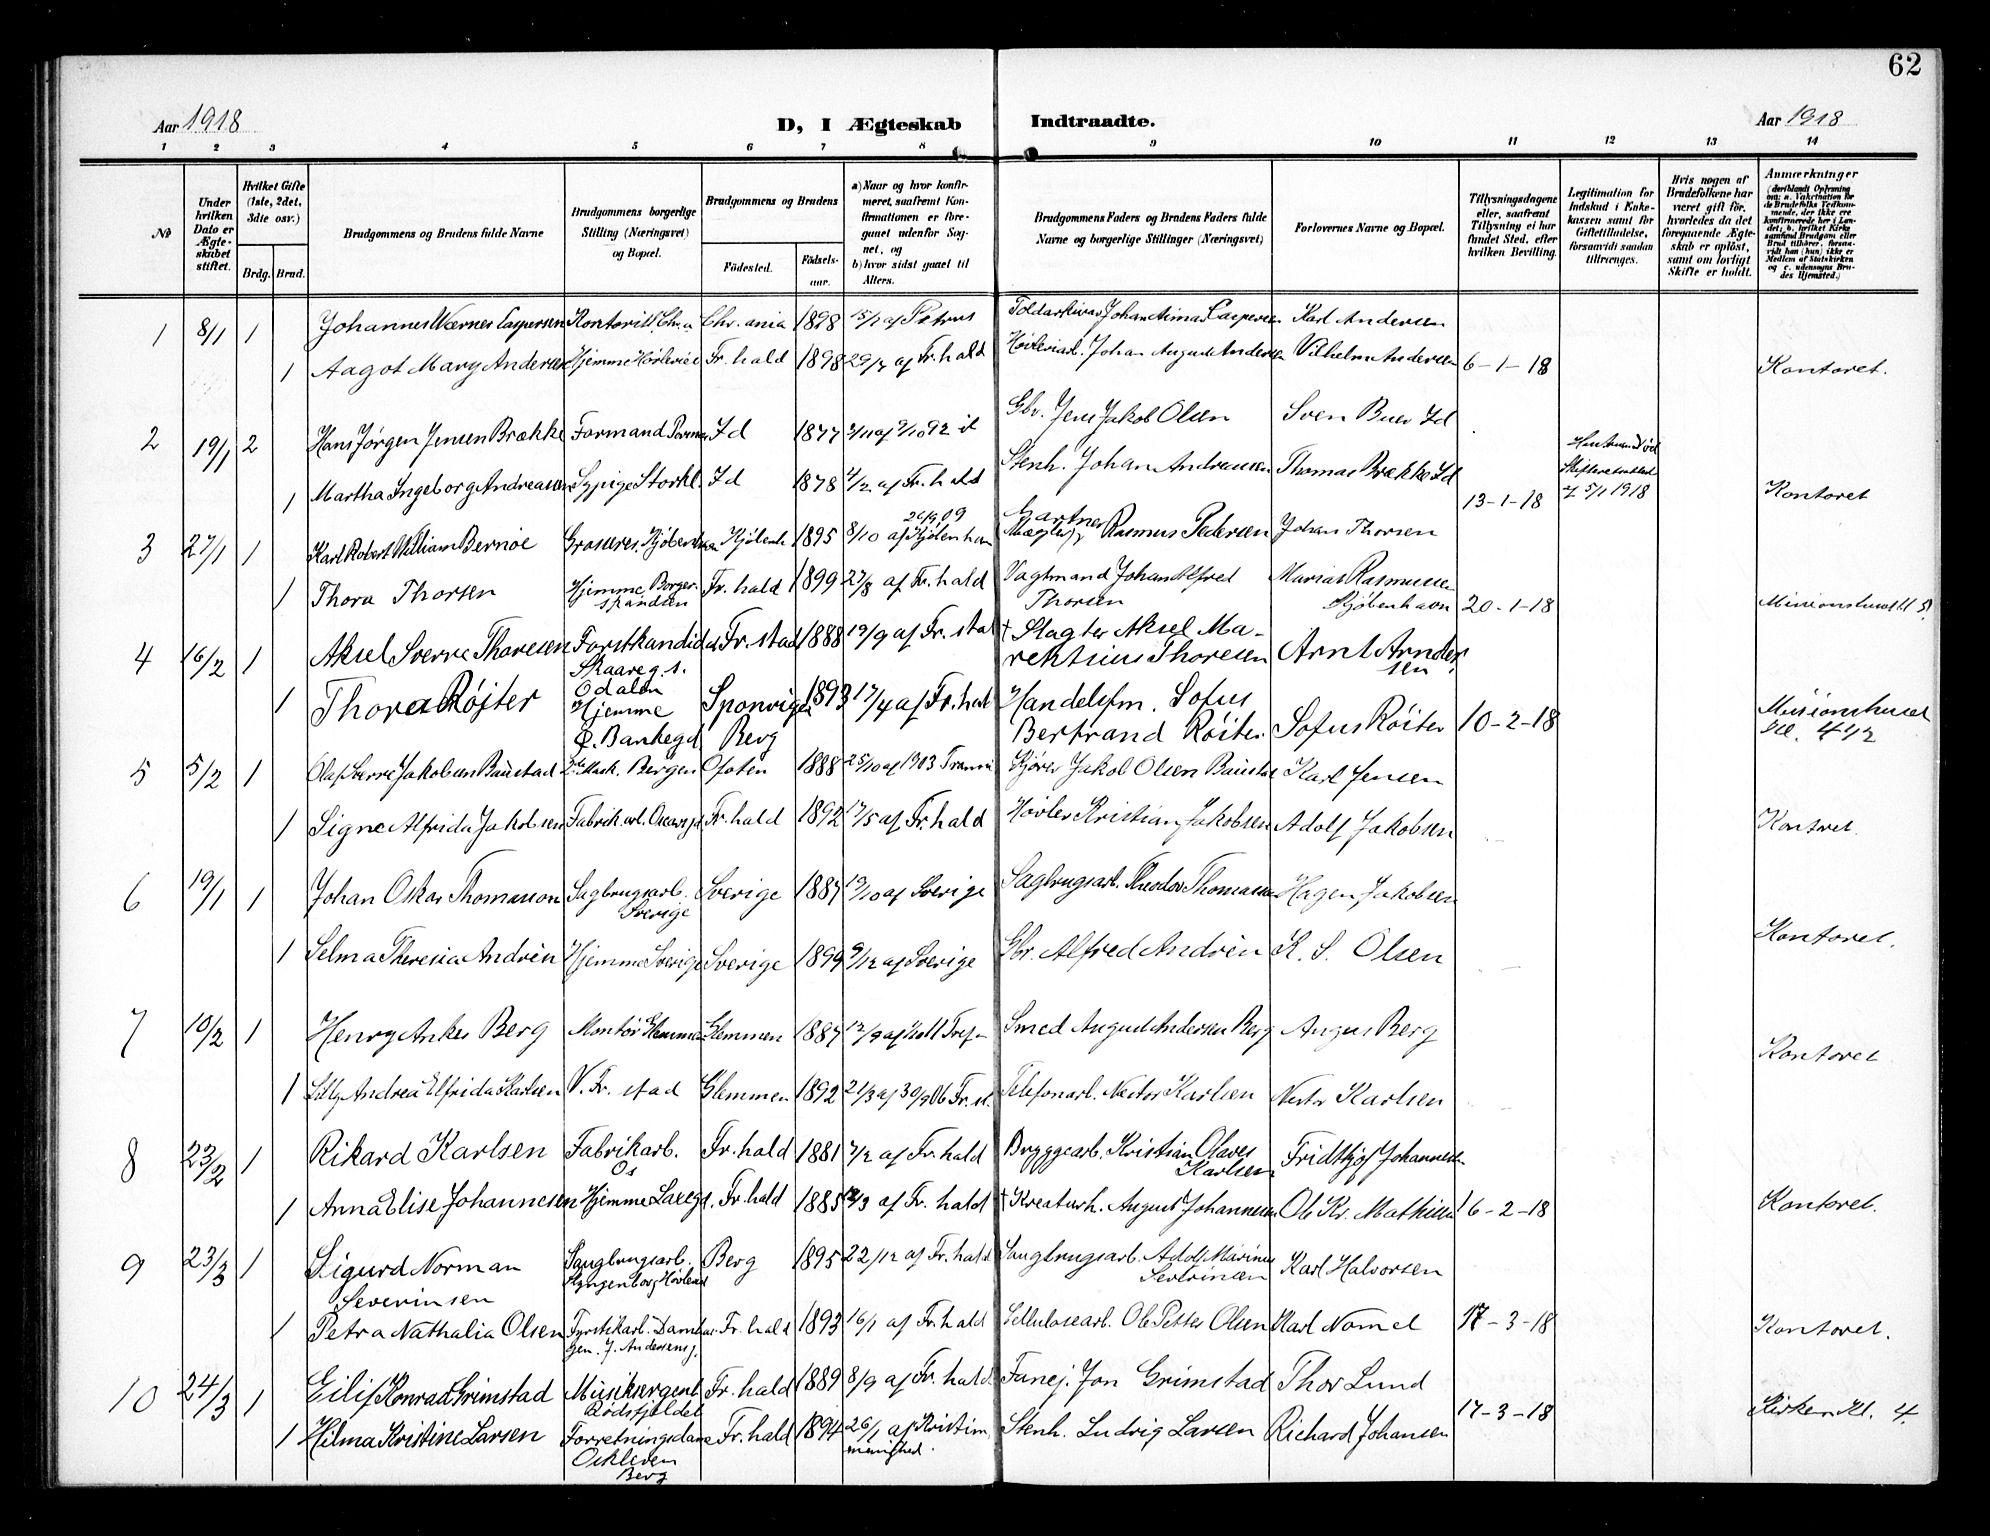 62
Aar 1918 D, I Ægteskab Indtraadte. Aar 1918
1 2 3 4 5 6 7 8 9 10 11 12 13 14
No
Under hvilken Dato er Ægteskabet stiftet.
Hvilket Gifte (1ste, 2det, 3die osv.)
Brdg. Brud.
Brudgommens og Brudens fulde Navne
Brudgommens borgerlige Stilling (Næringsvei) og Bopæl.
Brudgommens og Brudens
Fødested. Fødselsaar.
a) Naar og hvor konfirmeret, saafremt Konfirmationen er foregaaet udenfor Sognet, og
b) hvor sidst gaaet til Alters.
Brudgommens Faders og Brudens Faders fulde Navne og borgerlige Stillinger (Næringsvei)
Forlovernes Navne og Bopæl.
Tillysningsdagene eller, saafremt Tillysning ei har fundet Sted, efter hvilken Bevilling.
Legitimation for Indskud i Enkekassen samt for Giftetilladelse, forsaavidt saadan tiltrænges.
Hvis nogen af Brudefolkene har været gift før, hvorledes da det foregaaende Ægteskab er opløst, samt om lovligt Skifte er holdt.
Anmærkninger
1 8/1 1 Johannes Wærner Caspersen Kontorist Chr.a Chr.ania 1898 Johan Caspersen Karl Andersen
1 Aagot Mary Andersen Hjemme Fr.hald 1898 af Fr.hald Johan August Andersen Vilhelm Andersen 6-1-18 Kontoret.
2 19/1 2 Hans Jørgen Jensen Brække Formand Id 1877 Gbr. Jens Jakob Olsen Sven Buer Id
1 Martha Ingeborg Andreassen Sypige Id 1878 4/2 af Fr.hald Stenh. Johan Andreassen Thomas Brække Id 13-1-18 5/1 1918 Kontoret
3 27/1 1 Karl Robert William Bernøe Kjøbenh 1895 8/10 af Kjøbenhavn Gartner Rasmus Pedersen Johan Thorsen
1 Thora Thorsen Hjemme Borgerskandsen Fr.hald 1899 27/8 af Fr.hald Vagtmand Johan Alfred Thorsen Marius Rasmussen Kjøbenhavn 20-1-18
4 16/2 1 Aksel Sverre Thoresen Forstkandidat Odalen Fr.stad 1888 19/9 af Fr.stad † Slagter Aksel Marentsius Thoresen Arnt Arndersen
1 Thora Røiter Hjemme Ø. Bankegd Sponvigen Berg 1893 17/4 af Fr.hald Handelsfm. Sofus Bertrand Røiter Sofus Røiter 10-2-18 Missionshuset Kl. 4 1/2
5 5/2 1 Olaf Sverre Jakobsen Baustad Bergen Ofoten 1888 25/10 af 1903 Jakob Olsen Baustad Karl Jensen
1 Signe Alfrida Jakobsen Fabrikarb. Fr.hald 1892 17/5 af Fr.hald Høvler Kristian Jakobsen Adolf Jakobsen Kontoret.
6 19/1 1 Johan Oskar Thomasson Sagbrugsarb. Sverige Sverige 1887 19/10 af Sverige Sagbrugsarb. Theodor Thomasson Hagen Jakobsen
1 Selma Theresia Andrén Hjemme Sverige Sverige 1899 9/12 af Sverige Gbr. Alfred Andrén K. S. Olsen Kontoret.
7 10/2 1 Henry Anker Berg Montør Glemmen Glemmen 1887 Smed August Andersen Berg August Berg Kontoret
1 Andrea Elfrida Karlsen V. Fr.stad Glemmen 1892 21/3 af 30/906 Fr.st. Telefonarb. Nestor Karlsen Nestor Karlsen
8 23/2 1 Rikard Karlsen Fabrikarb. Os Fr.hald 1881 7/2 af Fr.hald Bryggearb. Kristian Olaves Karlsen Fridthjof Johannesen
1 Anna Elise Johannesen Hjemme Fr.hald 1885 af Fr.hald † Kreaturh. August Johannesen Ole Kr. Mathisen 16-2-18 Kontoret.
9 23/3 1 Sigurd Norman Severinsen Saugbrugsarb. Berg 1895 22/12 af Fr.hald Saugbrugsarb. Adolf Marinus Severinsen Karl Halvorsen
1 Petra Nathalia Olsen Fyrstikarb. Fr.hald 1893 16/1 af Fr.hald Cellulosearb. Ole Petter Olsen Karl Nomel 17-3-18 Kontoret.
10 24/3 1 Eilif Konrad Grimstad Musiksergent Rødsfjeldet Fr.hald 1889 8/9 af Fr.hald Fanej. Jon Grimstad Thor Lund
1 Hilma Kristine Larsen Forretningsdame Oskleven Berg Fr.hald 1894 26/1 af Kristi menighed. Stenh. Ludvig Larsen Richard Johansen 17-3-18 Kirken Kl. 4